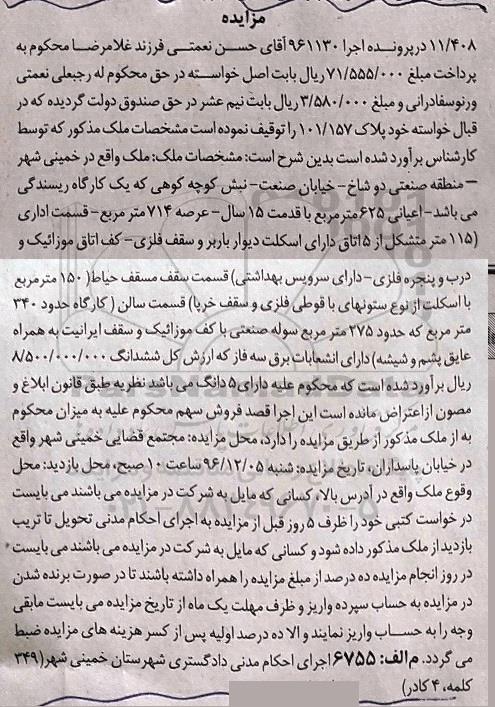 مزایده
۱۱/۴۰۸ درپرونده اجرا ۹۶۱۱۳۰ آقای حسن نعمتی فرزند غلامرضا محکوم به
پرداخت مبلغ ۷۱/۵۵۵/۰۰۰ ریال بابت اصل خواسته در حق محکوم له رجبعلی نعمتی
ورنوسفادرانی و مبلغ ۳/۵۸۰/۰۰۰ ریال بابت نیم عشر در حق صندوق دولت گردیده که در
قبال خواسته خود پلاک ۱۰۱/۱۵۷ را توقیف نموده است مشخصات ملک مذکور که توسط
کارشناس برآورد شده است بدین شرح است: مشخصات ملک: ملک واقع در خمینی شهر
–منطقه صنعتی دو شاخ– خیابان صنعت– نبش کوچه کوهی که یک کارگاه ریسندگی
می باشد– اعیانی ۶۲۵ متر مربع با قدمت ۱۵ سال– عرصه ۷۱۴ متر مربع– قسمت اداری
(۱۱۵ متر متشکل از ۵ اتاق دارای اسکلت دیوار باربر و سقف فلزی– کف اتاق موزائیک و
درب و پنجره فلزی– دارای سرویس بهداشتی) قسمت سقف مسقف حیاط( ۱۵۰ مترمربع
با اسکلت از نوع ستونهای با قوطی فلزی و سقف خرپا) قسمت سالن ( کارگاه حدود ۳۴۰
متر مربع که حدود ۲۷۵ متر مربع سوله صنعتی با کف موزائیک و سقف ایرانیت به همراه
عایق پشم و شیشه) دارای انشعابات برق سه فاز که ارزش کل ششدانگ ۸/۵۰۰/۰۰۰/۰۰۰
ریال برآورد شده است که محکوم علیه دارای ۵ دانگ می باشد نظریه طبق قانون ابلاغ و
مصون ازاعتراض مانده است این اجرا قصد فروش سهم محکوم علیه به میزان محکوم
به از ملک مذکور از طریق مزایده را دارد، محل مزایده: مجتمع قضایی خمینی شهر واقع
در خیابان پاسداران، تاریخ مزایده: شنبه ۹۶/۱۲/۰۵ ساعت ۱۰ صبح، محل بازدید: محل
وقوع ملک واقع در آدرس بالا، کسانی که مایل به شرکت در مزایده می باشند می بایست
در خواست کتبی خود را ظرف ۵ روز قبل از مزایده به اجرای احکام مدنی تحویل تا تریب
بازدید از ملک مذکور داده شود و کسانی که مایل به شرکت در مزایده می باشند می بایست
در روز انجام مزایده ده درصد از مبلغ مزایده را همراه داشته باشند تا در صورت برنده شدن
در مزایده به حساب سپرده واریز و ظرف مهلت یک ماه از تاریخ مزایده می بایست مابقی
وجه را به حساب واریز نمایند و الا ده درصد اولیه پس از کسر هزینه های مزایده ضبط
می گردد. م الف: ۶۷۵۵ اجرای احکام مدنی دادگستری شهرستان خمینی شهر(۳۴۹
کلمه، ۴ کادر)